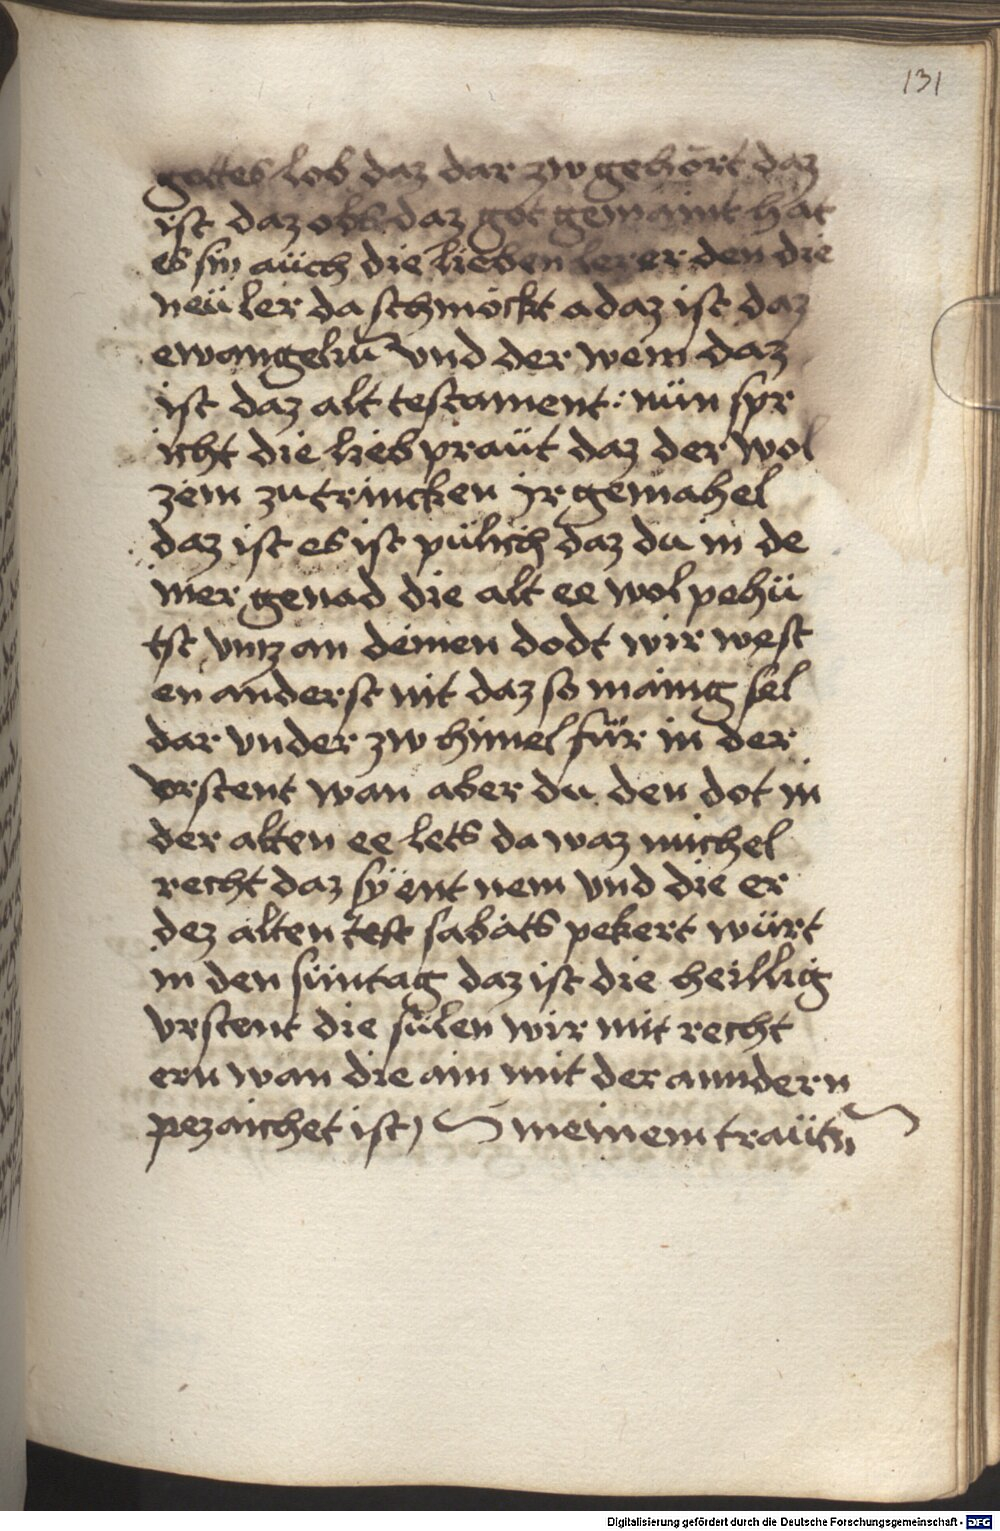 131
gottes lob daz dar zw gehört daz
ist daz obs daz got gemaint hat
es sin aüch die lieben lerer den die
neü ler da schmöckt a daz ist daz
ewangeliu̅ vnd der wein daz
ist daz alt testament : nün spr
icht die lieb praüt daz der wol
zem zu trincken jr gemahel
daz ist es ist pülich daz du in de
iner genad die alt ee wol pehü
tst vntz an deinen dodt wir west
en anderst nit daz so mainig sel
dar vnder zw himel für in der
vrstent wan aber du den dot in
der alten ee lets da waz michel
recht daz sÿ ent nem vnd die er
dez alten test sabats pekert würt
in den süntag daz ist die heillig
vrstent die sülen wir mit recht
ern wan die ain mit der anndern
pezaichet ist) meinem traütn̅
Digitalisierung gefördert durch die Deutsche Forschungsgemeinschaft - DFG